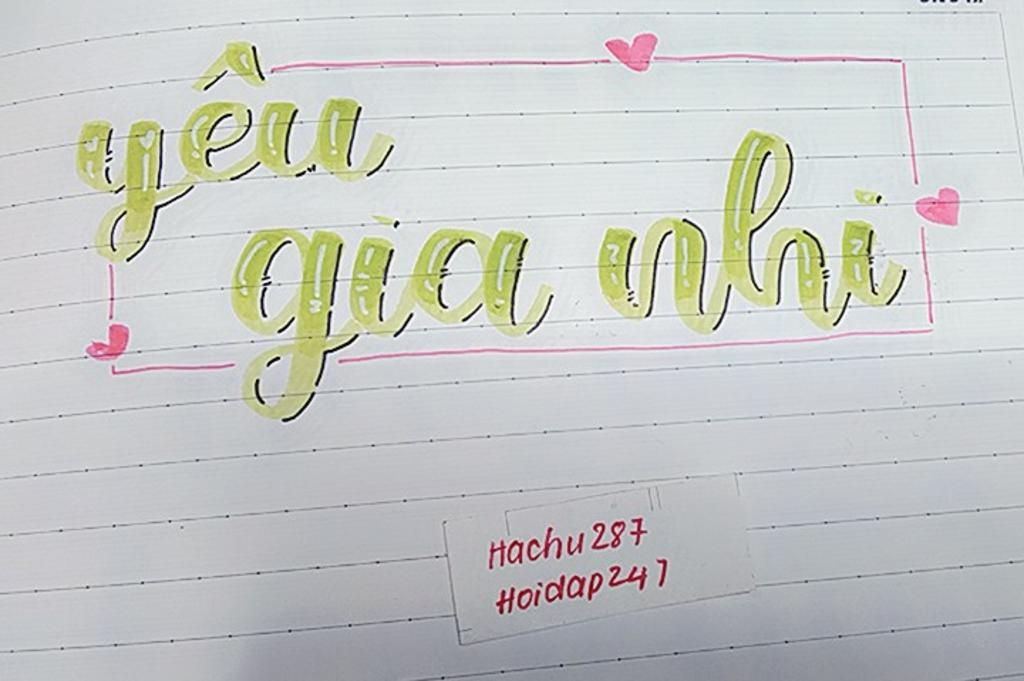 yêu
gia nhi
Hachu287
Hoidap247